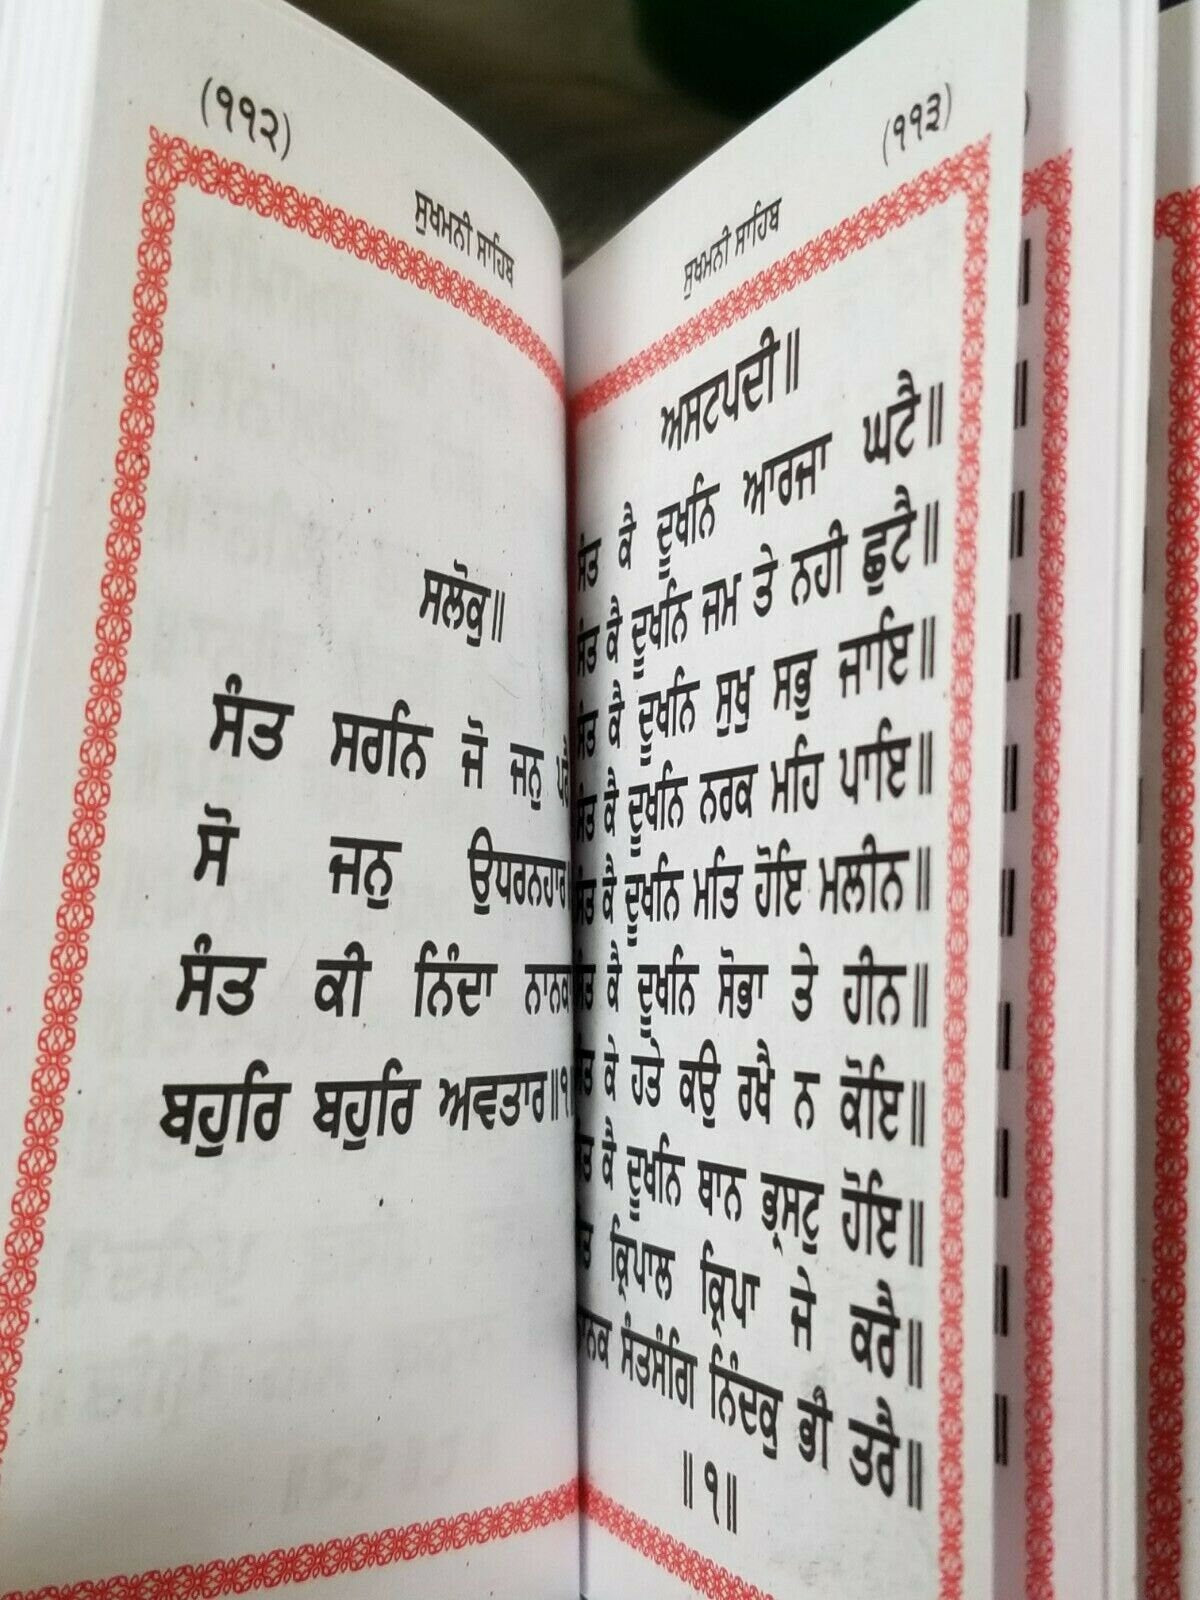 (੧੧੨)
ਸੁਖਮਨੀ ਸਾਹਿਬ
ਸਲੋਕੁ॥
ਸੰਤ ਸਰਨਿ ਜੋ ਜਨੁ ਪਰੈ
ਸੋ ਜਨੁ ਉਧਰਨਹਾਰ॥
ਸੰਤ ਕੀ ਨਿੰਦਾ ਨਾਨਕਾ
ਬਹੁਰਿ ਬਹੁਰਿ ਅਵਤਾਰ॥੧॥
(੧੧੩)
ਸੁਖਮਨੀ ਸਾਹਿਬ
ਅਸਟਪਦੀ॥
ਸੰਤ ਕੈ ਦੂਖਨਿ ਆਰਜਾ ਘਟੈ॥
ਸੰਤ ਕੈ ਦੂਖਨਿ ਜਮ ਤੇ ਨਹੀ ਛੁਟੈ॥
ਸੰਤ ਕੈ ਦੂਖਨਿ ਸੁਖੁ ਸਭੁ ਜਾਇ॥
ਸੰਤ ਕੈ ਦੂਖਨਿ ਨਰਕ ਮਹਿ ਪਾਇ॥
ਸੰਤ ਕੈ ਦੂਖਨਿ ਮਤਿ ਹੋਇ ਮਲੀਨ॥
ਸੰਤ ਕੈ ਦੂਖਨਿ ਸੋਭਾ ਤੇ ਹੀਨ॥
ਸੰਤ ਕੇ ਹਤੇ ਕਉ ਰਖੈ ਨ ਕੋਇ॥
ਸੰਤ ਕੈ ਦੂਖਨਿ ਥਾਨ ਭ੍ਰਸਟੁ ਹੋਇ॥
ਸੰਤ ਕ੍ਰਿਪਾਲ ਕ੍ਰਿਪਾ ਜੇ ਕਰੈ॥
ਨਾਨਕ ਸੰਤਸੰਗਿ ਨਿੰਦਕੁ ਭੀ ਤਰੈ॥
॥੧॥